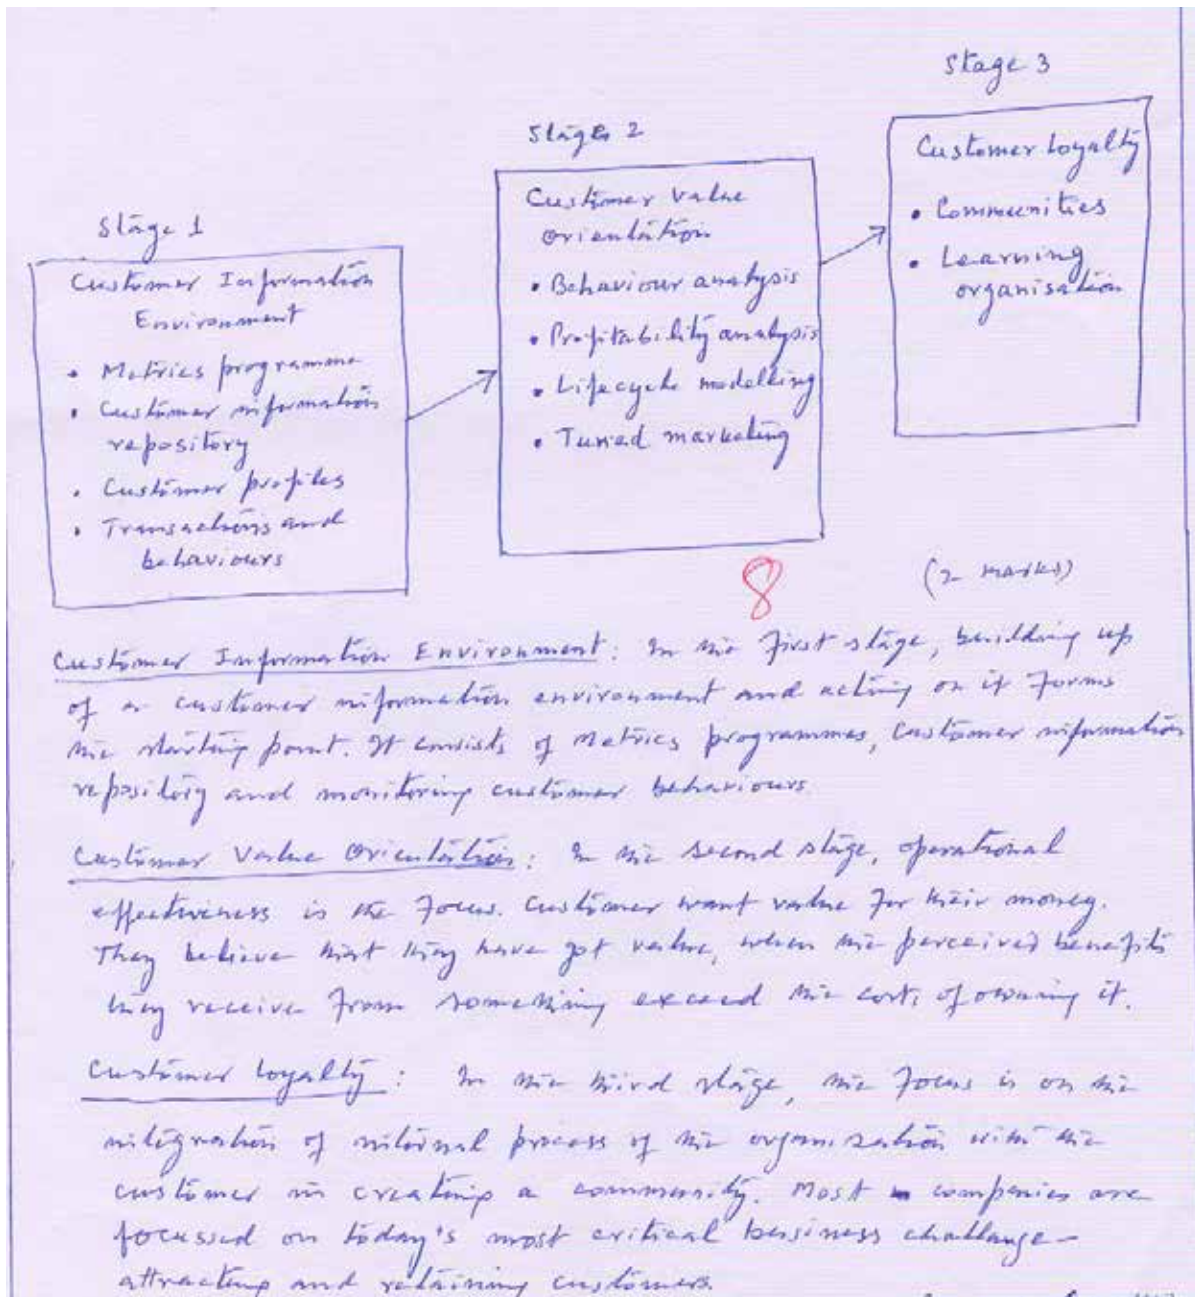 Stage 1
Customer Information
Environment
• Metrics programme
• Customer information
repository
• Customer profiles
• Transactions and
behaviours
Stages 2
Customer value
orientation
• Behaviour analysis
• Profitability analysis
• Lifecycle modelling
• Tuned marketing
Stage 3
Customer Loyalty
• Communities
• Learning
organisation
8
(2 marks)
Customer Information Environment: In the first stage, building up
of a customer information environment and acting on it forms
the starting point. It consists of Metrics programmes, Customer information
repository and monitoring customer behaviours.
Customer Value Orientation: In the second stage, operational
effectiveness is the focus. Customer want value for their money.
They believe that they have got value, when the perceived benefits
they receive from something exceed the costs of owning it.
Customer loyalty: In the third stage, the focus is on the
integration of internal process of the organisation with the
customer in creating a community. Most companies are
focussed on today's most critical business challange-
attracting and retaining customers.